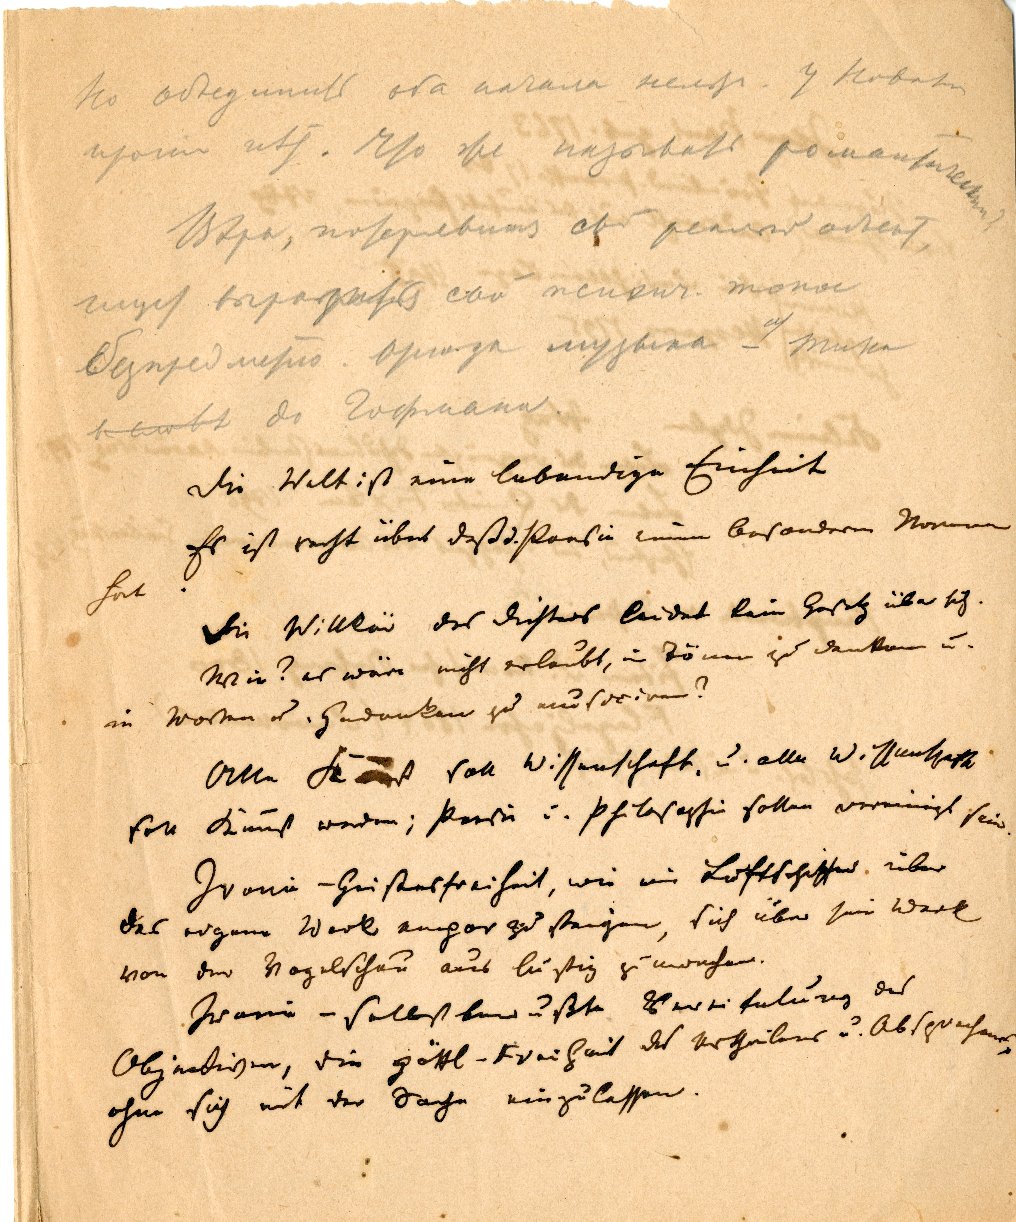 Но объединить оба начала нельзя. У Новалиса
иронии нѣт. Что же называть романтическим?
Вѣра, потерявшая свой реальный объект,
ищет выразить свой психич. тонос
безпредметно. Отсюда музыка – от Тика
до Гофмана.
Die Welt ist eine lebendige Einheit
Es ist recht übel daß d. Poesie einen besonderen Nammen
hat.
Die Willkür des Dichters leidet kein Gesetz über sich.
Wie? es wäre nicht erlaubt, in Tönen zu denken u.
in Worten u. Gedanken zu musiciren?
Alle Kunst soll Wissenschaft, u. alle Wissenschaft
soll Kunst werden; Poesie u. Philosophie sollen vereinigt sein.
Ironie – Geistesfreiheit, wie ein Luftschiffer über
das eigene Werk emporzusteigen, sich über sein Werk
von der Vogelschau aus lustig zu machen.
Ironie – selbstbewußte Vereitelung des
Objectiven, die göttl. Freiheit des Urtheilens u. Absprechens,
ohne sich mit der Sache einzulassen.